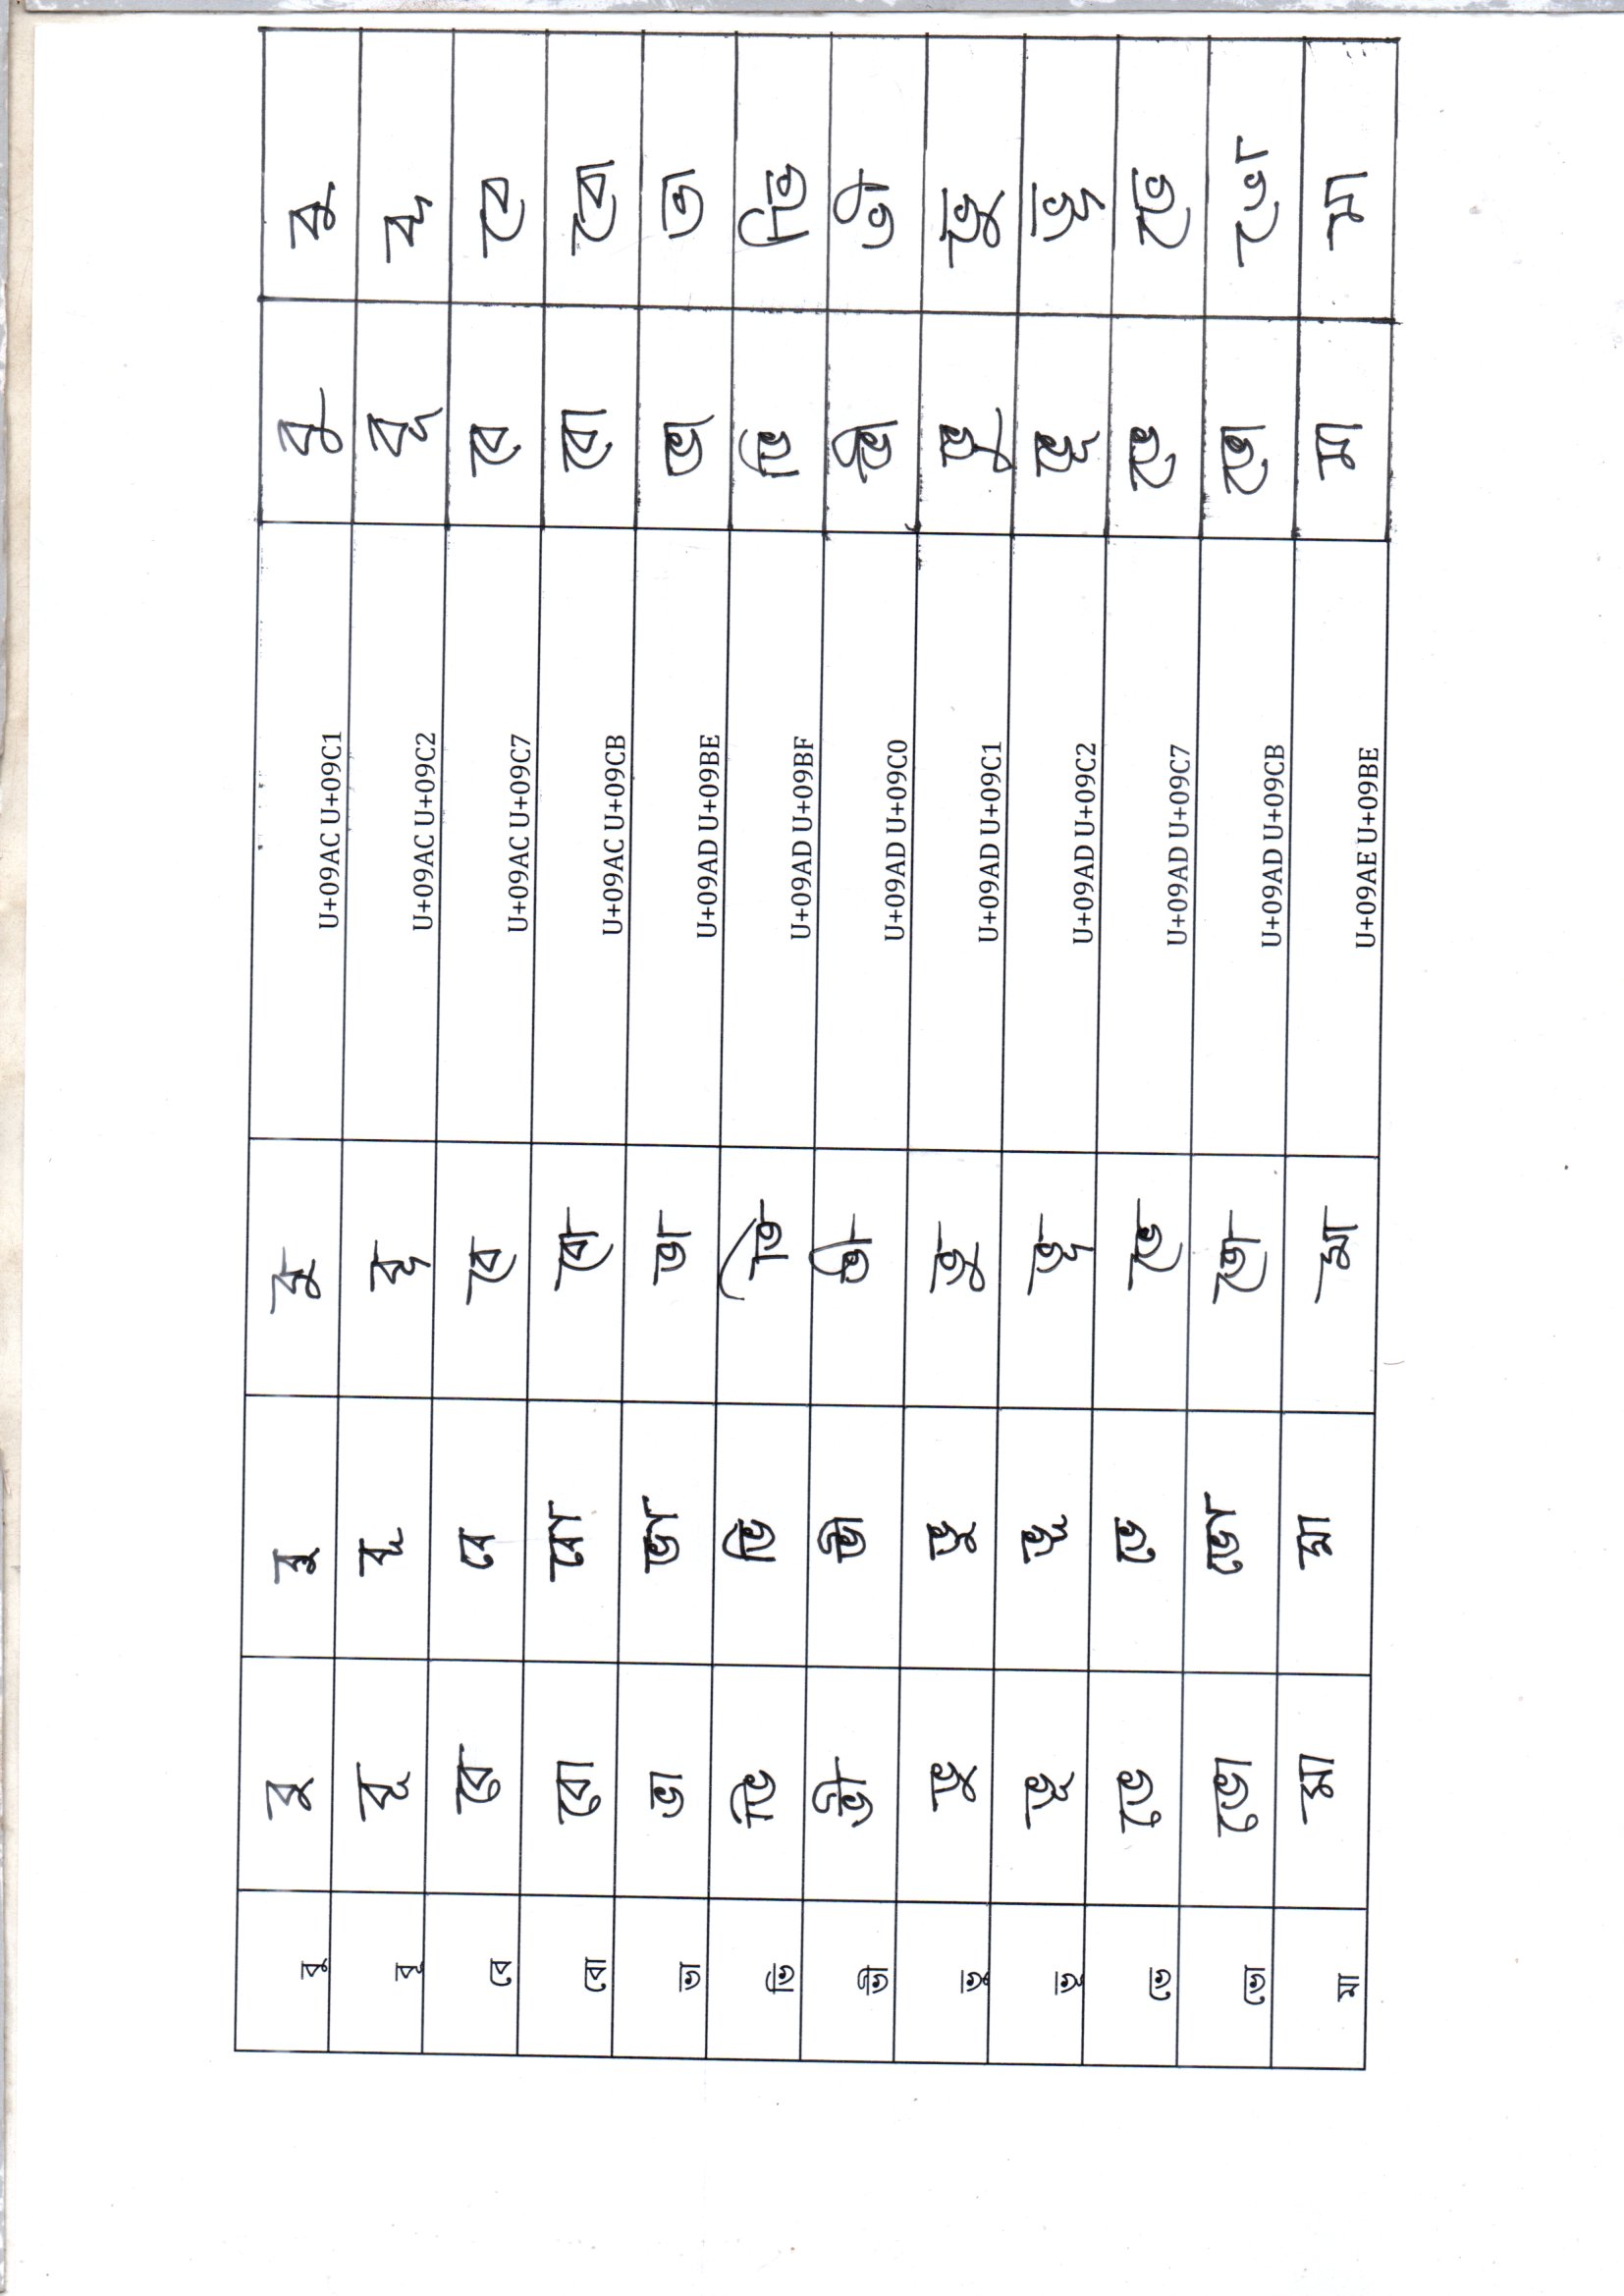 বু বু বু বু U+09AC U+09C1 বু বু
বূ বূ বূ বূ U+09AC U+09C2 বূ বূ
বে বে বে বে U+09AC U+09C7 বে বে
বো বো বো বো U+09AC U+09CB বো বো
ভা ভা ভা ভা U+09AD U+09BE ভা ভা
ভি ভি ভি ভি U+09AD U+09BF ভি ভি
ভী ভী ভী ভী U+09AD U+09C0 ভী ভী
ভু ভু ভু ভু U+09AD U+09C1 ভু ভু
ভূ ভূ ভূ ভূ U+09AD U+09C2 ভূ ভূ
ভে ভে ভে ভে U+09AD U+09C7 ভে ভে
ভো ভো ভো ভো U+09AD U+09CB ভো ভো
মা মা মা মা U+09AE U+09BE মা মা